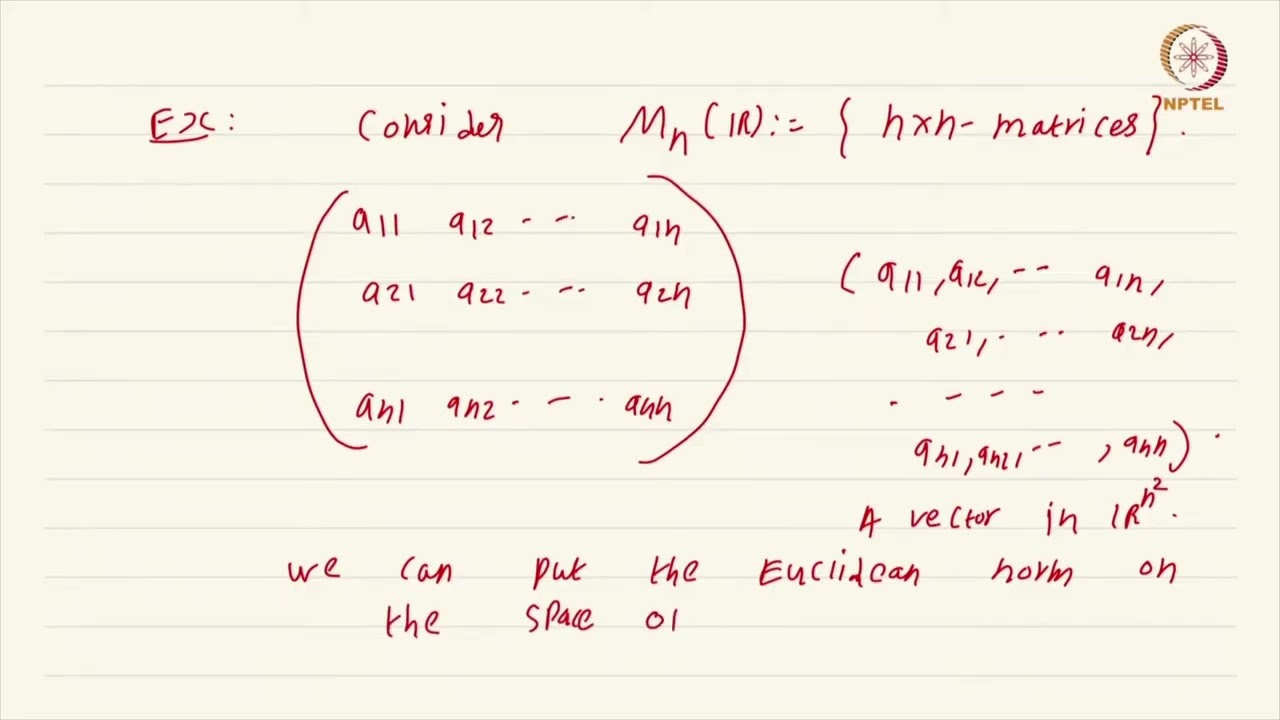 NPTEL
Ex: Consider Mn(IR) := { n×n- matrices}.
a11 a12 - -- a1n
a21 a22 - -- a2n
an1 an2 - - . ann
(a11, a12, -- a1n,
a21, . -- a2n,
. - - -
an1, an2, -- , ann) .
A vector in IRⁿ².
we can put the Euclidean norm on
the space of